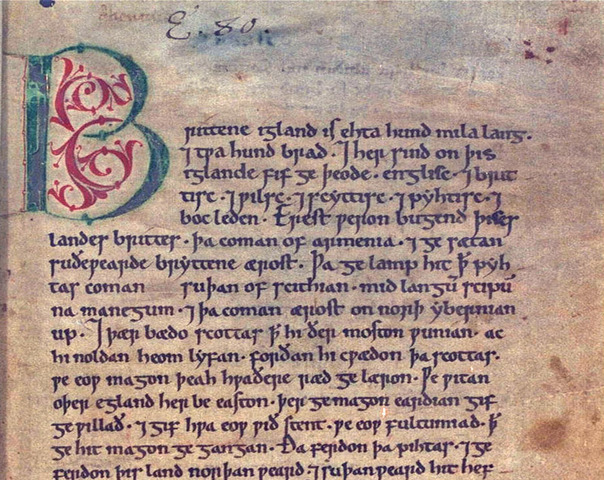 E. 80.
Brittene igland is ehta hund mila lang.
⁊ tƿa hund brad. ⁊ her sind on þis
iglande fif ge þeode. englisc. ⁊ brit
tisc. ⁊ ƿilsc. ⁊ scyttisc. ⁊ pyhtisc. ⁊
boc leden. Erest ƿeron bugend þises
landes brittes. þa coman of armenia. ⁊ ge sætan
suðeƿearde bryttene ærost. Þa ge lamp hit ꝥ pyh
tas coman suþan of scithian. mid langū scipū
na manegum. ⁊ þa coman ærost on norþ ybernian
up. ⁊ þær bædo scottas ꝥ hi ðer moston ƿunian. ac
hi noldan heom lyfan. forðan hi cƿædon þa scottas.
ƿe eoƿ magon þeah hƿaðere ræd ge læron. Ƿe ƿitan
oþer egland her be easton. þer ge magon eardian gif
ge ƿillað. ⁊ gif hƿa eoƿ ƿið stent. ƿe eoƿ fultumiað. ꝥ
ge hit magon ge gangan. Ða ferdon þa pihtas. ⁊ ge
ferdon þis land norþan ƿeard. ⁊ suþanƿeard hit hef